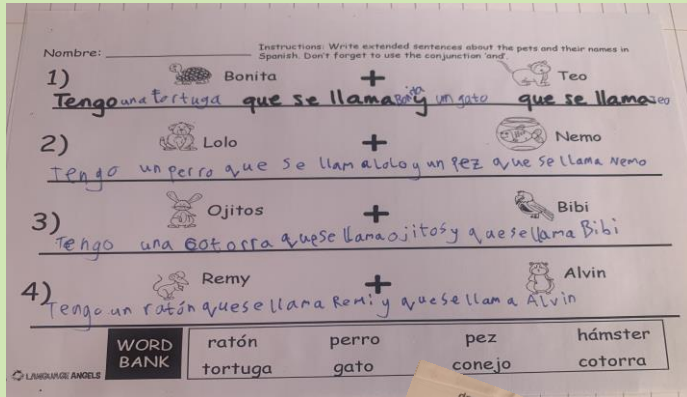 Nombre: Instructions: Write extended sentences about the pets and their names in Spanish. Don't forget to use the conjunction 'and'.
1) Bonita + Teo
Tengo una tortuga que se llama Bonita y un gato que se llama Teo
2) Lolo + Nemo
Tengo un perro que se llama Lolo y un pez que se llama Nemo
3) Ojitos + Bibi
Tengo una cotorra que se llama ojitos y que se llama Bibi
4) Remy + Alvin
Tengo un ratón que se llama Remi y que se llama Alvin
WORD BANK
ratón perro pez hámster
tortuga gato conejo cotorra
LANGUAGE ANGELS